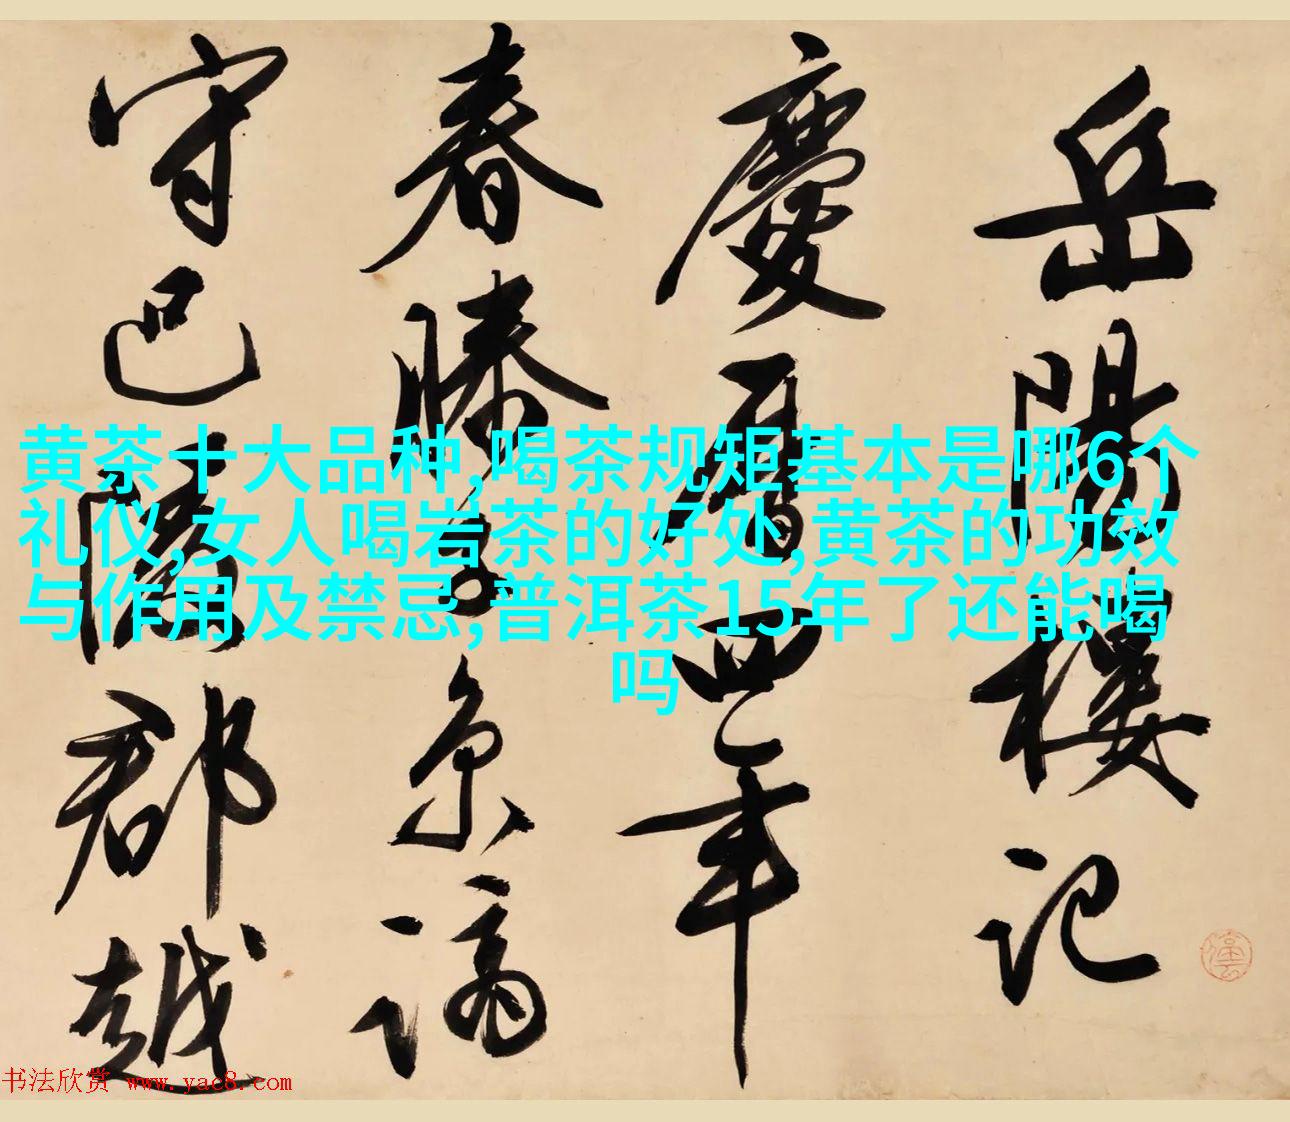 岳陽樓記
慶曆四年
春滕子京謫
守巴陵郡越
黄茶十大品种,喝茶规矩基本是哪6个
礼仪,女人喝岩茶的好处,黄茶的功效
与作用及禁忌,普洱茶15年了还能喝
吗
书法欣赏 www.yac8.com